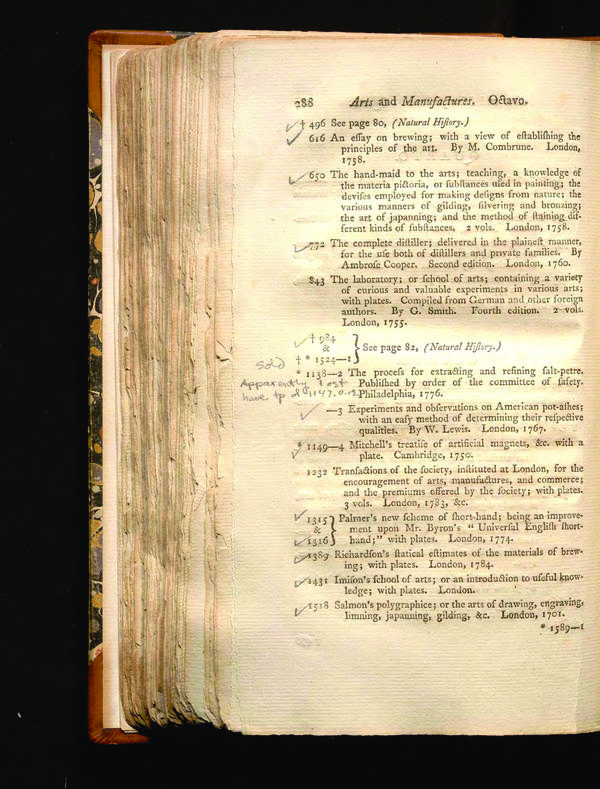 288 Arts and Manufaƈtures. Oƈtavo.
† 496 See page 80, (Natural Hiſtory.)
616 An eſſay on brewing; with a view of eſtabliſhing the
principles of the art. By M. Combrune. London,
1758.
650 The hand-maid to the arts; teaching, a knowledge of
the materia piƈtoria, or ſubſtances uſed in painting; the
deviſes employed for making deſigns from nature; the
various manners of gilding, ſilvering and bronzing;
the art of japanning; and the method of ſtaining dif-
ferent kinds of ſubſtances. 2 vols. London, 1758.
772 The complete diſtiller; delivered in the plaineſt manner,
for the uſe both of diſtillers and private families. By
Ambroſe Cooper. Second edition. London, 1760.
843 The laboratory; or ſchool of arts; containing a variety
of curious and valuable experiments in various arts;
with plates. Compiled from German and other foreign
authors. By G. Smith. Fourth edition. 2 vols.
London, 1755.
† 984
& } See page 82, (Natural Hiſtory.)
† * 1524—1
Sold
* 1138—2 The proceſs for extraƈting and refining ſalt-petre.
Apparently lost
Publiſhed by order of the committee of ſafety.
have tp of 1147.0.12
Philadelphia, 1776.
—3 Experiments and obſervations on American pot-aſhes;
with an eaſy method of determining their reſpeƈtive
qualities. By W. Lewis. London, 1767.
* 1149—4 Mitchell's treatiſe of artificial magnets, &c. with a
plate. Cambridge, 1750.
1232 Tranſaƈtions of the ſociety, inſtituted at London, for the
encouragement of arts, manufaƈtures, and commerce;
and the premiums offered by the ſociety; with plates.
3 vols. London, 1783, &c.
1315 } Palmer's new ſcheme of ſhort-hand; being an improve-
& ment upon Mr. Byron's "Univerſal Engliſh ſhort-
1316 hand;" with plates. London, 1774.
1389 Richardſon's ſtatical eſtimates of the materials of brew-
ing; with plates. London, 1784.
1431 Imiſon's ſchool of arts; or an introduƈtion to uſeful know-
ledge; with plates. London.
1518 Salmon's polygraphice; or the arts of drawing, engraving,
limning, japanning, gilding, &c. London, 1701.
* 1589—1